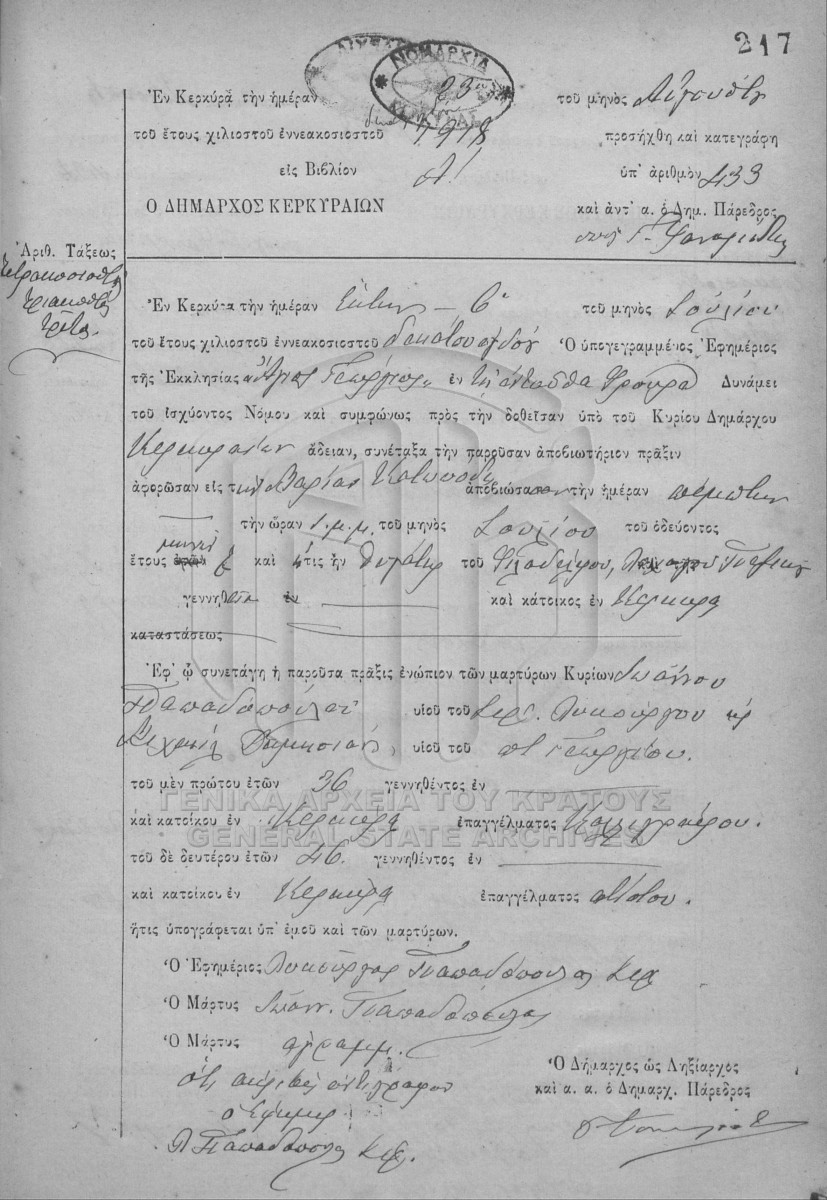 217
ΝΟΜΑΡΧΙΑ
ΚΕΡΚΥΡΑΣ
Ἐν Κερκύρᾳ τὴν ἡμέραν 23 τοῦ μηνὸς Αὐγούστου
τοῦ ἔτους χιλιοστοῦ ἐννεακοσιοστοῦ 1918 προσήχθη καὶ κατεγράφη
εἰς Βιβλίον Α! ὑπ' ἀριθμὸν 433
Ο ΔΗΜΑΡΧΟΣ ΚΕΡΚΥΡΑΙΩΝ καὶ ἀντ' α. ὁ Δημ. Πάρεδρος
Ἀριθ. Τάξεως
τετρακοσιοστὸς
τριακοστὸς
τρίτος.
Ἐν Κερκύρα τὴν ἡμέραν ἕκτην – 6" τοῦ μηνὸς Ἰουλίου
τοῦ ἔτους χιλιοστοῦ ἐννεακοσιοστοῦ δεκάτου ὀγδόου Ὁ ὑπογεγραμμένος Ἐφημέριος
τῆς Ἐκκλησίας „Ἅγιος Γεώργιος„ ἐν τῷ ἐνταῦθα Φρουρίῳ Δυνάμει
τοῦ ἰσχύοντος Νόμου καὶ συμφώνως πρὸς τὴν δοθεῖσαν ὑπὸ τοῦ Κυρίου Δημάρχου
Κερκυραίων ἄδειαν, συνέταξα τὴν παροῦσαν ἀποβιωτήριον πρᾶξιν
ἀφορῶσαν εἰς τὴν Μαρίαν ἀποβιώσασαν τὴν ἡμέραν πέμπτην
τὴν ὥραν 1. μ.μ. τοῦ μηνὸς Ἰουλίου τοῦ ὁδεύοντος
μηνῶν
ἔτους ἐτῶν καὶ ἥτις ἦν θυγάτηρ τοῦ Φιλαδέλφου,
γεννηθεῖσα ἐν καὶ κάτοικος ἐν Κερκύρᾳ
καταστάσεως
Ἐφ' ᾧ συνετάγη ἡ παροῦσα πρᾶξις ἐνώπιον τῶν μαρτύρων Κυρίων Ἰωάννου
Παπαδοπούλου υἱοῦ τοῦ Ἱερ. Λυκούργου κ
Μιχαὴλ υἱοῦ τοῦ Γεωργίου.
τοῦ μὲν πρώτου ἐτῶν 36 γεννηθέντος ἐν
καὶ κατοίκου ἐν Κερκύρᾳ ἐπαγγέλματος
τοῦ δὲ δευτέρου ἐτῶν 46. γεννηθέντος ἐν
καὶ κατοίκου ἐν Κερκύρᾳ ἐπαγγέλματος
ἥτις ὑπογράφεται ὑπ' ἐμοῦ καὶ τῶν μαρτύρων.
Ὁ Ἐφημέριος Λυκοῦργος Παπαδόπουλος Ἱερ
Ὁ Μάρτυς Ἰωάνν. Παπαδόπουλος
Ὁ Μάρτυς ἀγράμμ.
ὅτι ἀκριβὲς ἀντίγραφον
ὁ Ἐφημέρ
Λ Παπαδόπουλος Ἱερ.
Ὁ Δήμαρχος ὡς Ληξίαρχος
καὶ α. α. ὁ Δημαρχ. Πάρεδρος
ΓΕΝΙΚΑ ΑΡΧΕΙΑ ΤΟΥ ΚΡΑΤΟΥΣ
GENERAL STATE ARCHIVES